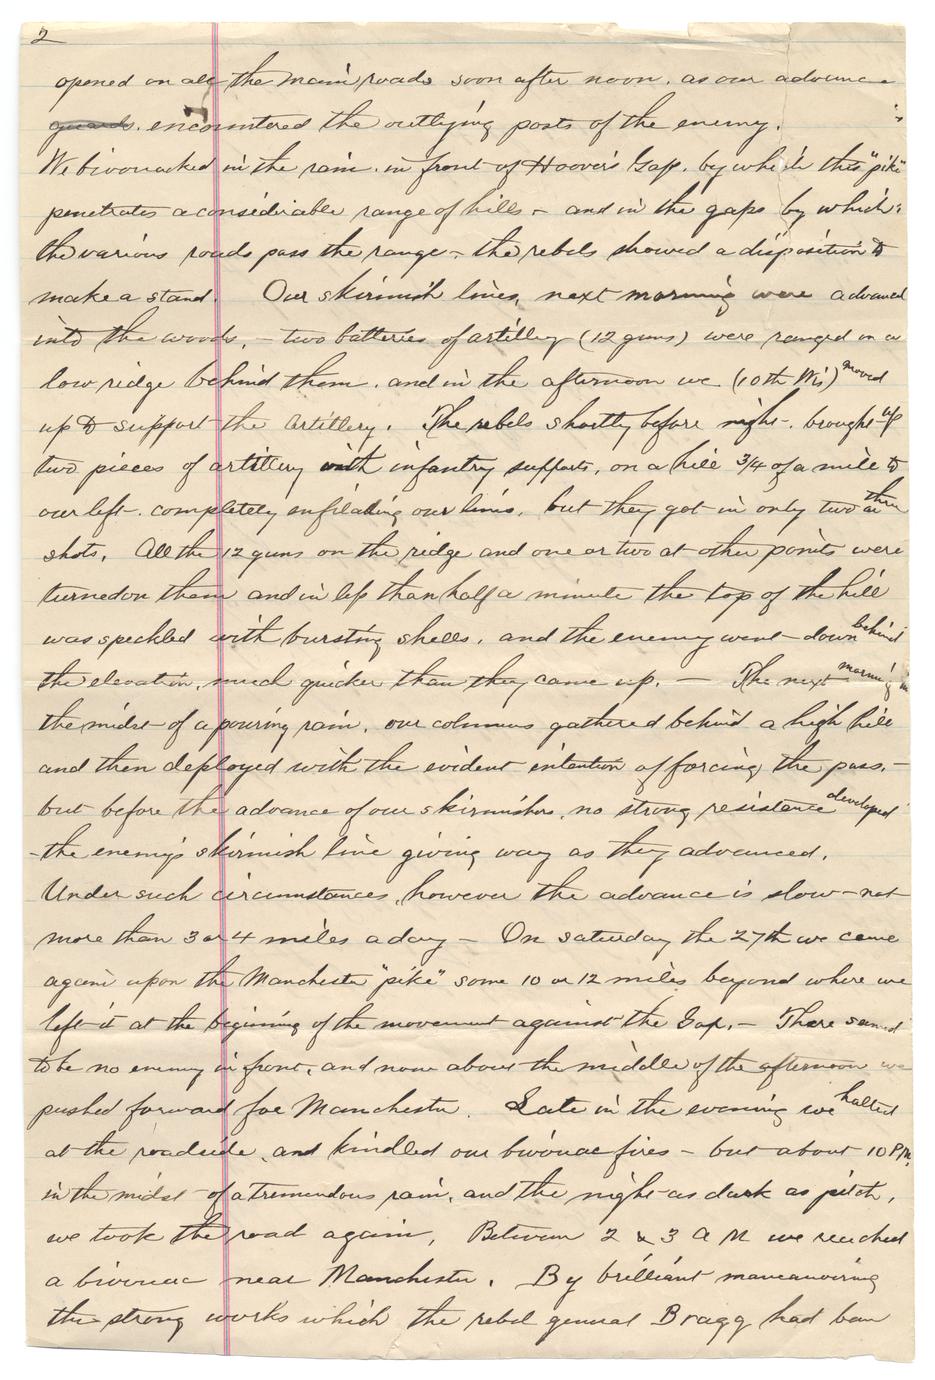 2
opened on all the main roads soon after noon. as our advance
guards. encountered the outlying posts of the enemy.
We bivouacked in the rain. in front of Hoover's Gap. by which this "pike"
penetrates a considerable range of hills – and in the gaps by which
the various roads pass the range – the rebels showed a disposition to
make a stand. Our skirmish lines, next morning were advanced
into the woods, – two batteries of artillery (12 guns) were ranged on a
low ridge behind them. and in the afternoon we (10th Wis) moved
up to support the artillery. The rebels shortly before night. brought up
two pieces of artillery with infantry supports, on a hill 3/4 of a mile to
our left. completely enfilading our lines, but they got in only two or three
shots. All the 12 guns on the ridge and one or two at other points were
turned on them and in less than half a minute the top of the hill
was speckled with bursting shells. and the enemy went down behind
the elevation, much quicker than they came up. — The next morning in
the midst of a pouring rain. our columns gathered behind a high hill
and then deployed with the evident intention of forcing the pass. –
but before the advance of our skirmishers, no strong resistance developed
– the enemy's skirmish line giving way as they advanced.
Under such circumstances, however the advance is slow – not
more than 3 or 4 miles a day – On saturday the 27th we came
again upon the Manchester "pike" some 10 or 12 miles beyond where we
left it at the begining of the movement against the Gap. – There seemed
to be no enemy in front, and now about the middle of the afternoon we
pushed forward for Manchester. Late in the evening we halted
at the roadside, and kindled our bivouac fires – but about 10 P.M.
in the midst of a tremendous rain, and the night as dark as pitch,
we took the road again, Between 2 & 3 A M we reached
a bivouac near Manchester. By brilliant maneauvering
the strong works which the rebel general Bragg had been